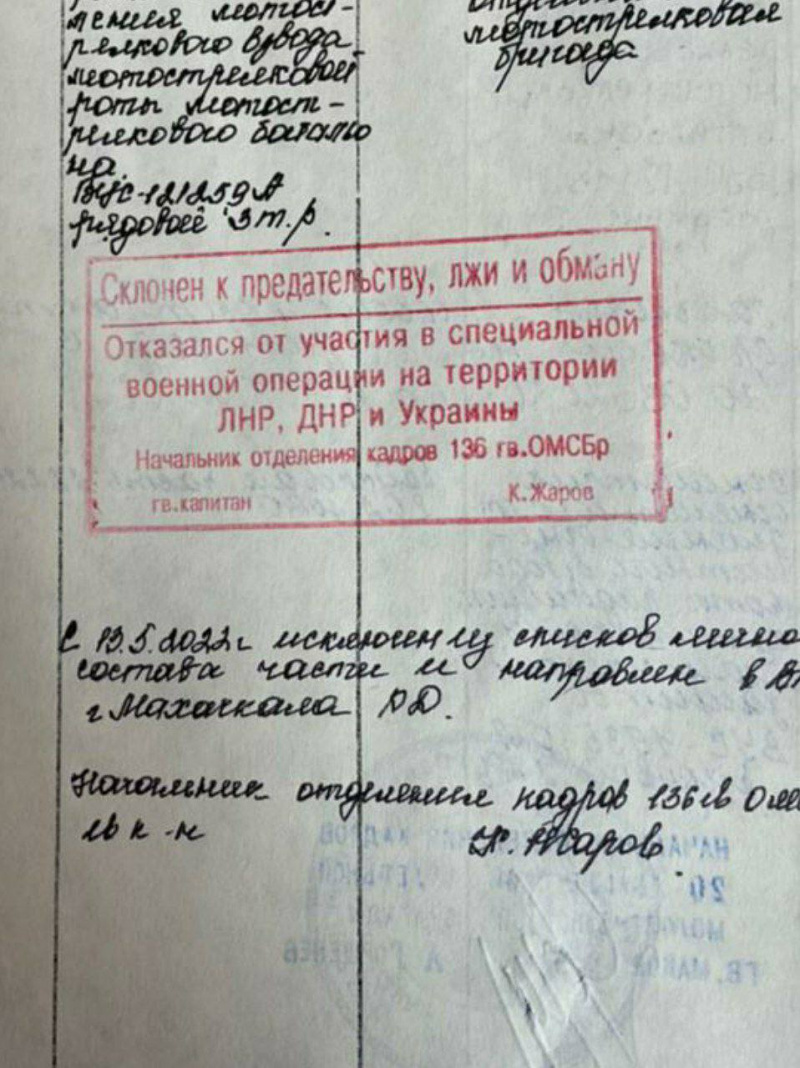 ления мотост-
релкового взвода
мотострелковой
роты мотост-
релкового батальо
на.
ВУС-121259А
рядовой 3 т.р.
мотострелковая
бригада
Склонен к предательству, лжи и обману
Отказался от участия в специальной
военной операции на территории
ЛНР, ДНР и Украины
Начальник отделения кадров 136 гв.ОМСБр
гв.капитан К.Жаров
С 13.5.2022г исключен из списков лично
состава части и направлен в В
г Махачкала РД.
Начальник отделения кадров 136 гв Омс
гв к-н К. Жаров